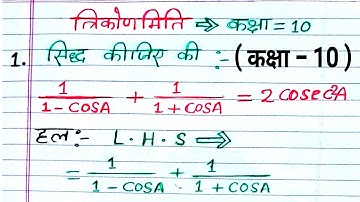 त्रिकोणमिति ⇒ कक्षा = 10
1. सिद्ध कीजिए की :- (कक्षा - 10)
1/(1 - COSA) + 1/(1 + COSA) = 2 cosec²A
हल:- L.H.S ⇒
= 1/(1 - COSA) + 1/(1 + COSA)